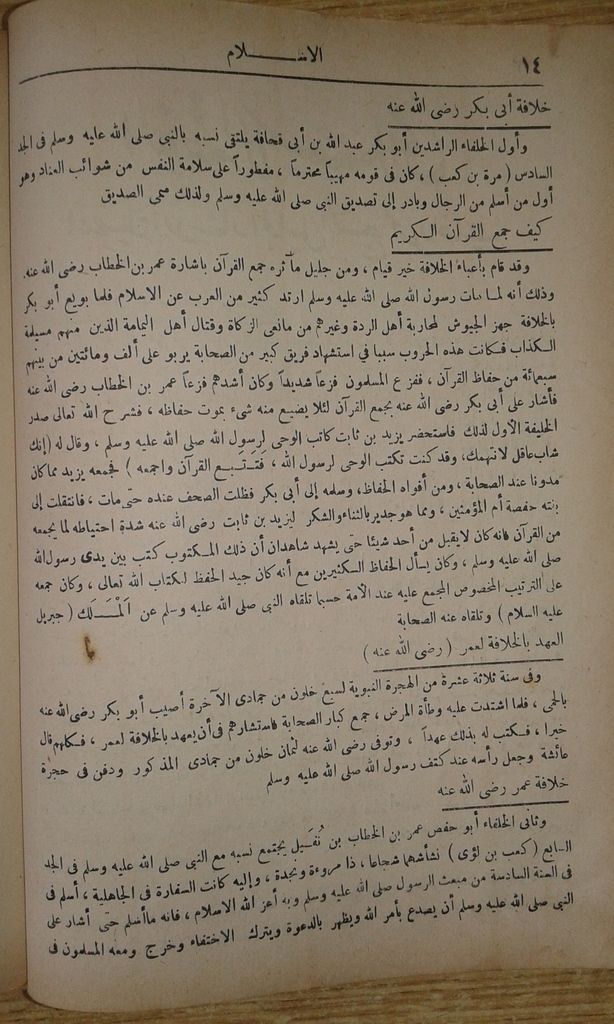 الاســـلام
١٤
خلافة أبى بكر رضى الله عنه
وأول الخلفاء الراشدين أبو بكر عبد الله بن أبى قحافة يلتقى نسبه بالنبى صلى الله عليه وسلم فى الجد
السادس ( مرة بن كعب ) ، كان فى قومه مهيباً محترماً ، مفطوراً على سلامة النفس من شوائب العناد وهو
أول من أسلم من الرجال وبادر إلى تصديق النبى صلى الله عليه وسلم ولذلك سمى الصديق
كيف جمع القرآن الـكريم
وقد قام بأعباء الخلافة خير قيام ، ومن جليل مآثره جمع القرآن باشارة عمر بن الخطاب رضى الله عنه.
وذلك أنه لما مات رسول الله صلى الله عليه وسلم ارتد كثير من العرب عن الاسلام فلما بويع أبو بكر
بالخلافة جهز الجيوش لمحاربة أهل الردة وغيرهم من مانعى الزكاة وقتال أهل اليمامة الذين منهم مسيلمة
الـكذاب فـكانت هذه الحروب سببا فى استشهاد فريق كبير من الصحابة يربو على ألف ومائتين من بينهم
سبعمائة من حفاظ القرآن ، ففزع المسلمون فزعاً شديداً وكان أشدهم فزعاً عمر بن الخطاب رضى الله عنه
فأشار على أبى بكر رضى الله عنه بجمع القرآن لئلا يضيع منه شىء بموت حفاظه ، فشرح الله تعالى صدر
الخليفة الأول لذلك فاستحضر يزيد بن ثابت كاتب الوحى لرسول الله صلى الله عليه وسلم ، وقال له (إنك
شاب عاقل لانتهمك، وقد كنت تكتب الوحى لرسول الله ، فَتَتَبـع القرآن واجمعه ) فجمعه يزيد مما كان
مدونا عند الصحابة ، ومن أفواه الحفاظ، وسلمه إلى أبى بكر فظلت الصحف عنده حتى مات ، فانتقلت إلى
بنته حفصة أم المؤمنين ، ومما هو جدير بالثناء والشكر ليزيد بن ثابت رضى الله عنه شدة احتياطه لما يجمعه
من القرآن فانه كان لايقبل من أحد شيئا حتى يشهد شاهدان أن ذلك المـكتوب كتب بين يدى رسول الله
صلى الله عليه وسلم ، وكان يسأل الحفاظ الـكثيرين مع أنه كان جيد الحفظ لـكتاب الله تعالى ، وكان جمعه
على الترتيب المخصوص المجمع عليه عند الأمة حسبما تلقاه النبى صلى الله عليه وسلم عن المَـلَك ( جبريل
عليه السلام ) وتلقاه عنه الصحابة
العهد بالخلافة لعمر ( رضى الله عنه )
وفى سنة ثلاثة عشرة من الهجرة النبوية لسبع خلون من جمادى الآخرة أصيب أبو بكر رضى الله عنه
بالحمى ، فلما اشتدت عليه وطأة المرض، جمع كبار الصحابة فاستشارهم فى أن يعهد بالخلافة لعمر ، فـكلهم قال
خيرا ، فـكتب له بذلك عهداً ، وتوفى رضى الله عنه لثمان خلون من جمادى المذكور ودفن فى حجرة
عائشة وجعل رأسه عند كتف رسول الله صلى الله عليه وسلم
خلافة عمر رضى الله عنه
وثانى الخلفاء أبو حفص عمر بن الخطاب بن نُفَـيل يجتمع نسبه مع النبى صلى الله عليه وسلم فى الجد
السابع ( كعب بن لؤى ) نشأ شهما شجاعا ، ذا مروءة ونجدة ، وإليه كانت السفارة فى الجاهلية ، أسلم فى
فى السنة السادسة من مبعث الرسول صلى الله عليه وسلم وبه أعز الله الاسلام ، فانه ماأسلم حتى أشار على
النبى صلى الله عليه وسلم أن يصدع بأمر الله ويظهر بالدعوة ويترك الاختفاء وخرج ومعه المسلمون فى